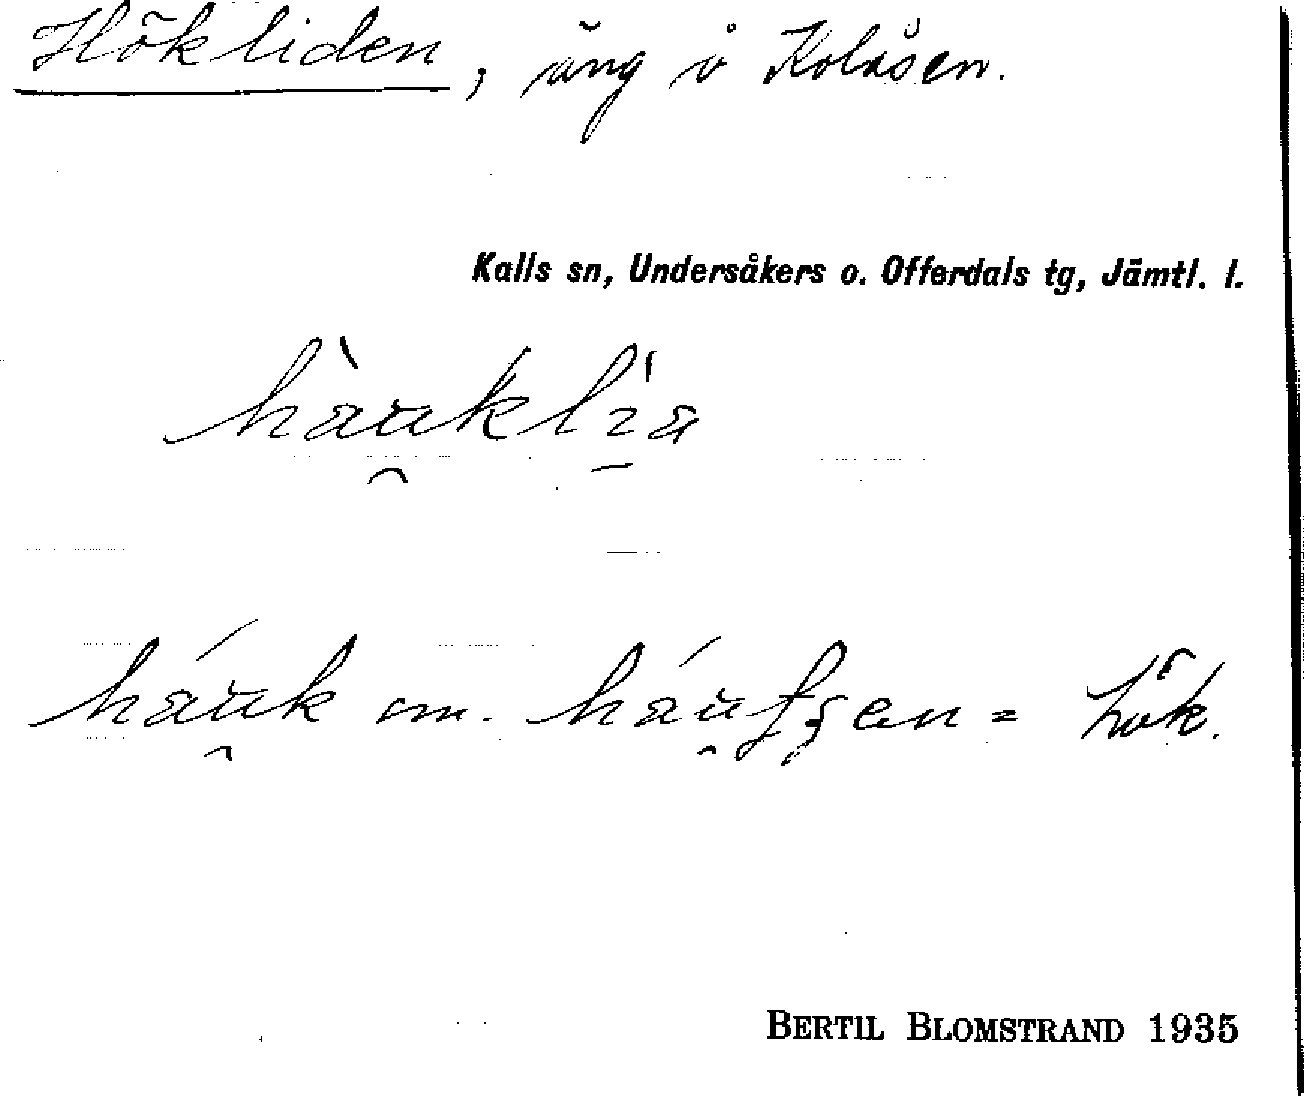 Hökliden, äng å Kolåsen.
Kalls sn, Undersåkers o. Offerdals tg, Jämtl. l.
hàu̯klı̠̀a
háu̯k m. háu̯fʒen = hök.
BERTIL BLOMSTRAND 1935